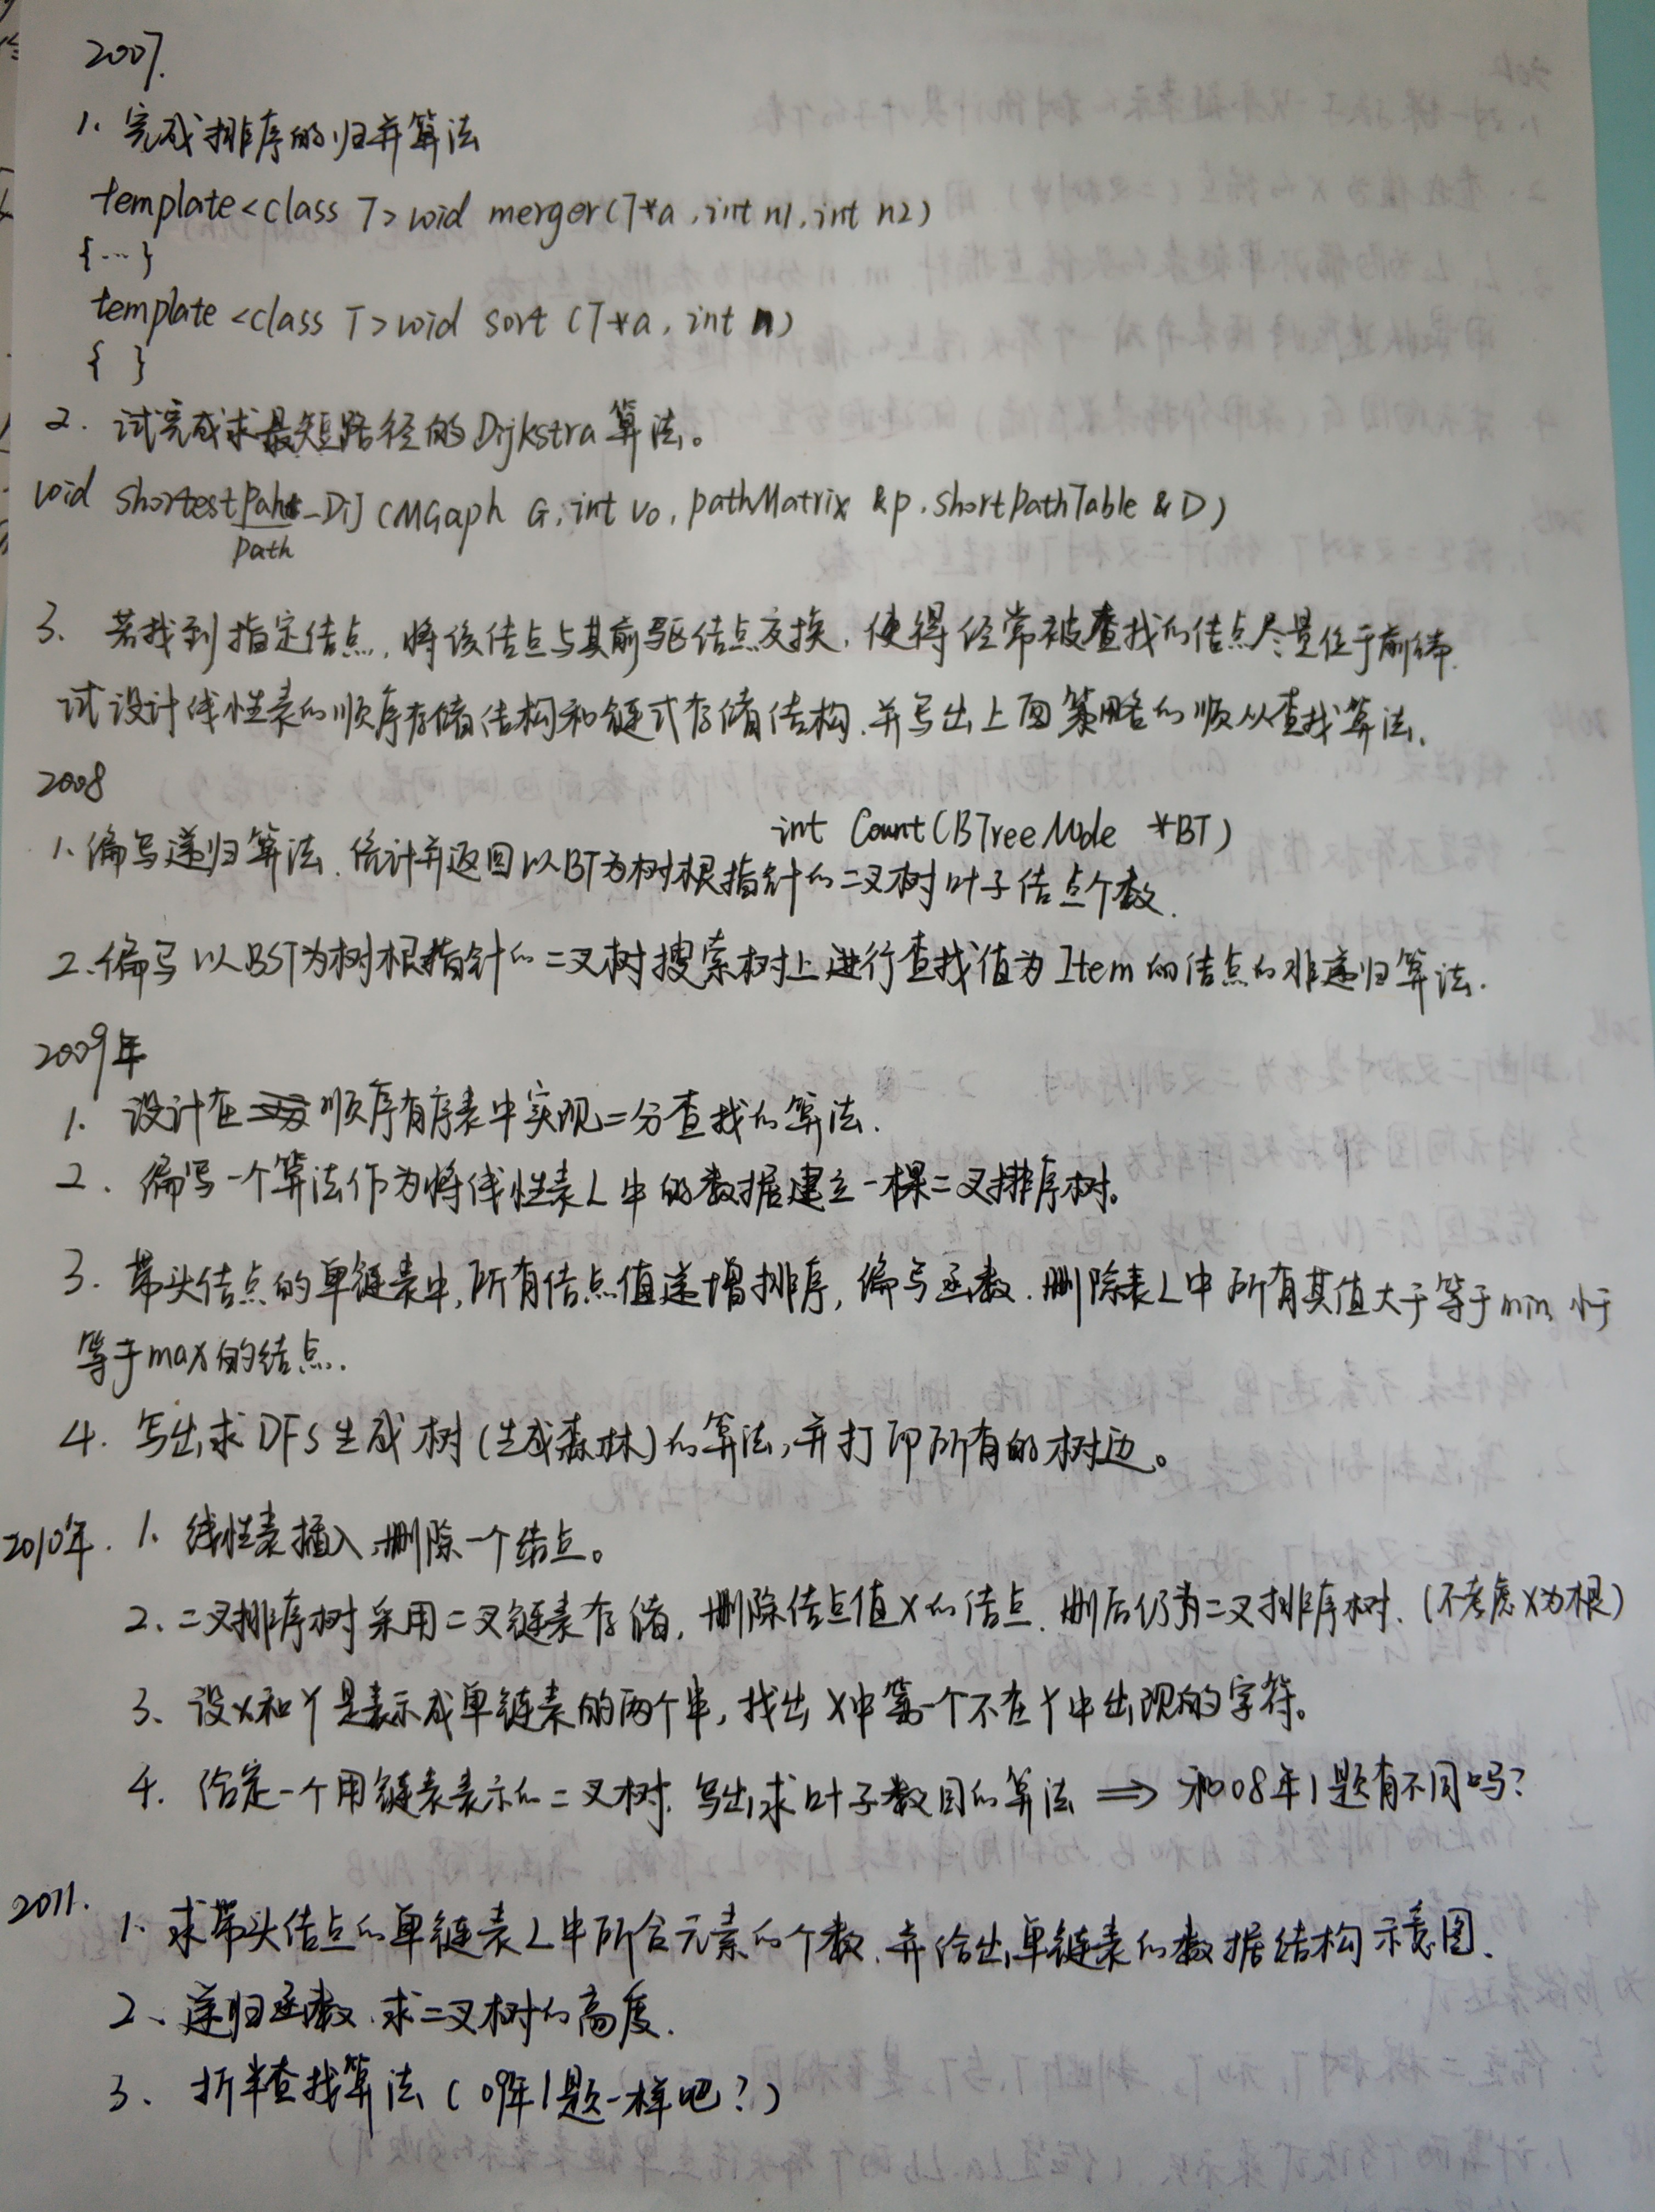 2007.
1. 完成排序的归并算法
template<class T> void merger(T*a, int n1, int n2)
{…}
template <class T> void sort (T*a, int n)
{ }
2. 试完成求最短路径的Dijkstra算法。
void shortestpaht_DiJ (MGaph G, int v0, pathMatrix &p, shortpathTable &D)
path
3. 若找到指定结点,将该结点与其前驱结点交换,使得经常被查找的结点尽量位于前端.
试设计线性表的顺序存储结构和链式存储结构.并写出上面策略的顺从查找算法.
2008
int Count(BTreeNode *BT)
1.编写递归算法.统计并返回以BT为树根指针的二叉树叶子结点个数.
2.编写以BST为树根指针的二叉树搜索树上进行查找值为Item的结点的非递归算法.
2009年
1. 设计在顺序有序表中实现二分查找的算法.
2. 编写一个算法作为将线性表L中的数据建立一棵二叉排序树。
3. 带头结点的单链表中,所有结点值递增排序,编写函数.删除表L中所有其值大于等于min 小于
等于max的结点.
4. 写出求DFS生成树(生成森林)的算法,并打印所有的树边。
2010年. 1. 线性表插入、删除一个结点。
2、二叉排序树采用二叉链表存储,删除结点值X的结点.删后仍为二叉排序树.(不考虑X为根)
3、设X和Y是表示成单链表的两个串,找出X中第一个不在Y中出现的字符。
4. 给定一个用链表表示的二叉树.写出求叶子数目的算法 ⇒ 和08年1题有不同吗?
2011.
1. 求带头结点的单链表L中所含元素的个数.并给出单链表的数据结构示意图.
2、递归函数.求二叉树的高度.
3、折半查找算法(09年1题一样吧?)